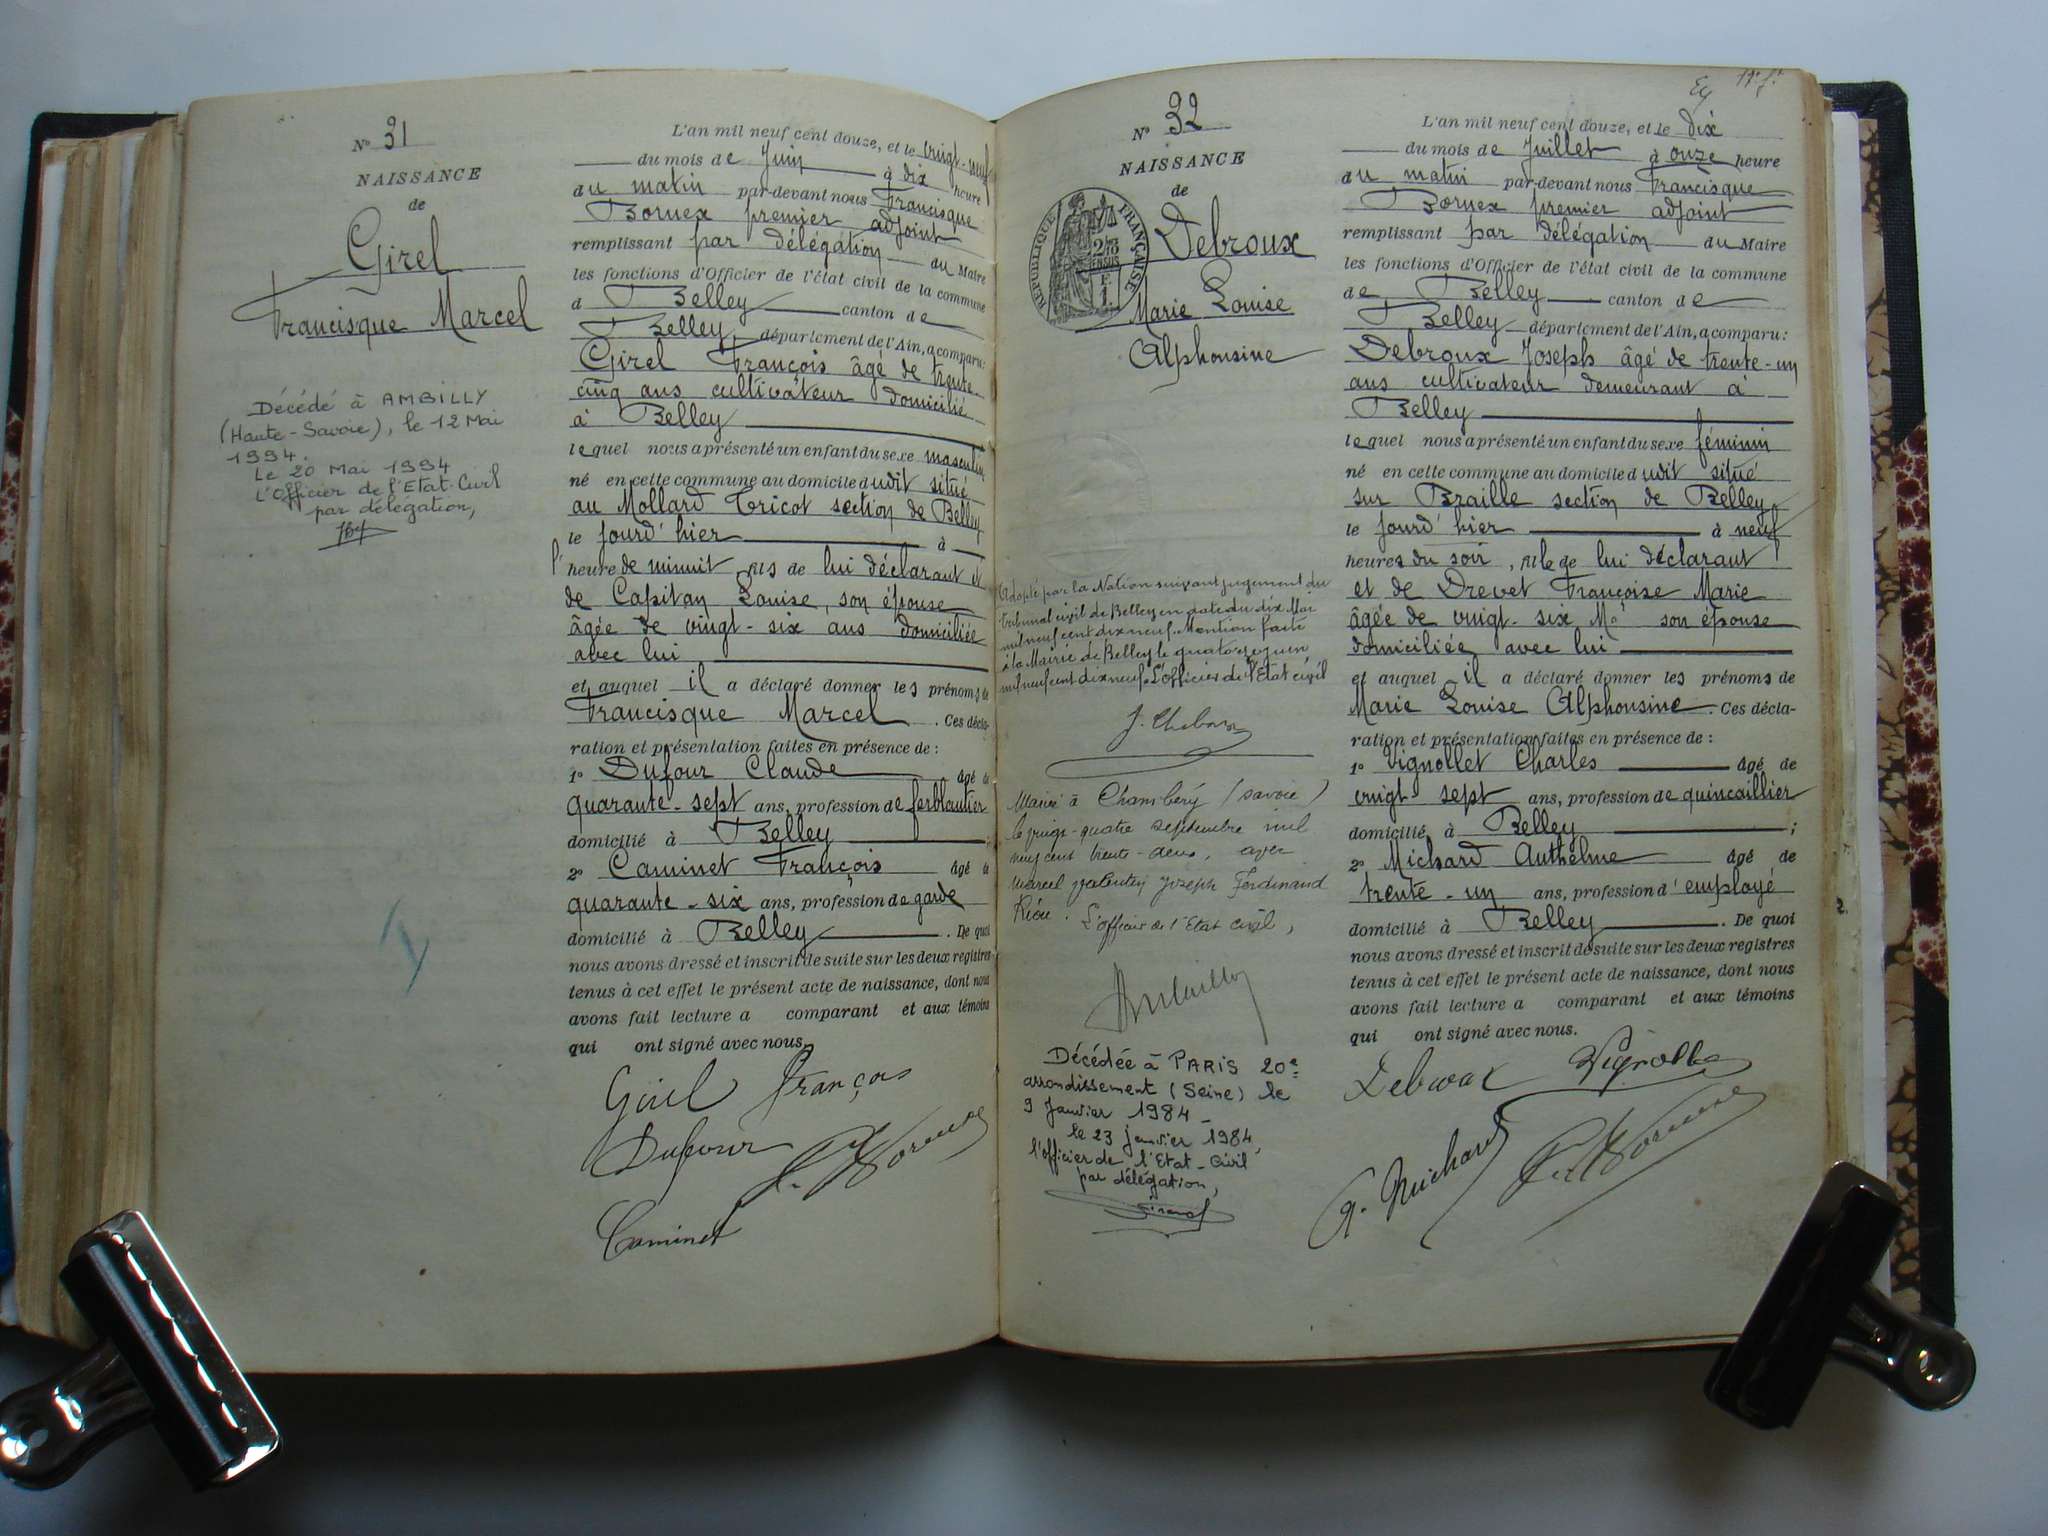 Nº 31
NAISSANCE
de
Girel
Francisque Marcel
Décédé à AMBILLY
(Haute-Savoie), le 12 Mai
1994.
Le 20 Mai 1994
L'Officier de l'Etat-Civil
par délégation,
L'an mil neuf cent douze, et le vingt-neuf
du mois de Juin à dix heure
du matin par-devant nous Francisque
Bornex premier adjoint
remplissant par délégation du Maire
les fonctions d'Officier de l'état civil de la commune
d Belley canton de
Belley département de l'Ain, a comparu:
Girel François âgé de trente
cinq ans cultivateur domicilié
à Belley
lequel nous a présenté un enfant du sexe masculin
né en cette commune au domicile dudit situé
au Mollard Tricot section de Belley
le jourd'hier à
l'heure de minuit, fils de lui déclarant et
de Capitan Louise, son épouse
âgée de vingt-six ans domiciliée
avec lui
et auquel il a déclaré donner les prénoms de
Francisque Marcel. Ces décla-
ration et présentation faites en présence de :
1º Dufour Claude âgé de
quarante-sept ans, profession de ferblantier
domicilié à Belley ;
2º Caminet François âgé de
quarante-six ans, profession de garde
domicilié à Belley. De quoi
nous avons dressé et inscrit de suite sur les deux registres
tenus à cet effet le présent acte de naissance, dont nous
avons fait lecture a comparant et aux témoins
qui ont signé avec nous.
Girel François
Dufour
F. Bornex
Caminet
Nº 32
NAISSANCE
de
RÉPUBLIQUE FRANÇAISE
Debroux
Marie Louise
Alphonsine
Adopté par la Nation suivant jugement du
Tribunal civil de Belley en date du dix Mai
mil neuf cent dix neuf. Mention faite
à la Mairie de Belley le quatorze juin
mil neuf cent dix neuf. L'officier de l'Etat civil
Mariée à Chambéry (Savoie)
le vingt-quatre septembre mil
neuf cent trente-deux, avec
Marcel Valentin Joseph Ferdinand
L'officier de l'Etat civil,
Décédée à PARIS 20e
arrondissement (Seine) le
9 Janvier 1984
le 23 janvier 1984,
l'officier de l'Etat-Civil
par délégation,
L'an mil neuf cent douze, et le dix
du mois de Juillet à onze heure
du matin par-devant nous Francisque
Bornex premier adjoint
remplissant par délégation du Maire
les fonctions d'Officier de l'état civil de la commune
de Belley canton de
Belley département de l'Ain, a comparu:
Debroux Joseph âgé de trente-un
ans cultivateur demeurant à
Belley
lequel nous a présenté un enfant du sexe féminin
né en cette commune au domicile dudit situé
sur Braille section de Belley
le jourd'hier à neuf
heures du soir, fille de lui déclarant
et de Drevet Françoise Marie
âgée de vingt-six Ms son épouse
domiciliée avec lui
et auquel il a déclaré donner les prénoms de
Marie Louise Alphonsine. Ces décla-
ration et présentation faites en présence de :
1º Vignollet Charles âgé de
vingt sept ans, profession de quincaillier
domicilié à Belley ;
2º Michard Anthelme âgé de
trente-un ans, profession d'employé
domicilié à Belley. De quoi
nous avons dressé et inscrit de suite sur les deux registres
tenus à cet effet le présent acte de naissance, dont nous
avons fait lecture a comparant et aux témoins
qui ont signé avec nous.
Debroux Vignollet
A. Michard F. Bornex